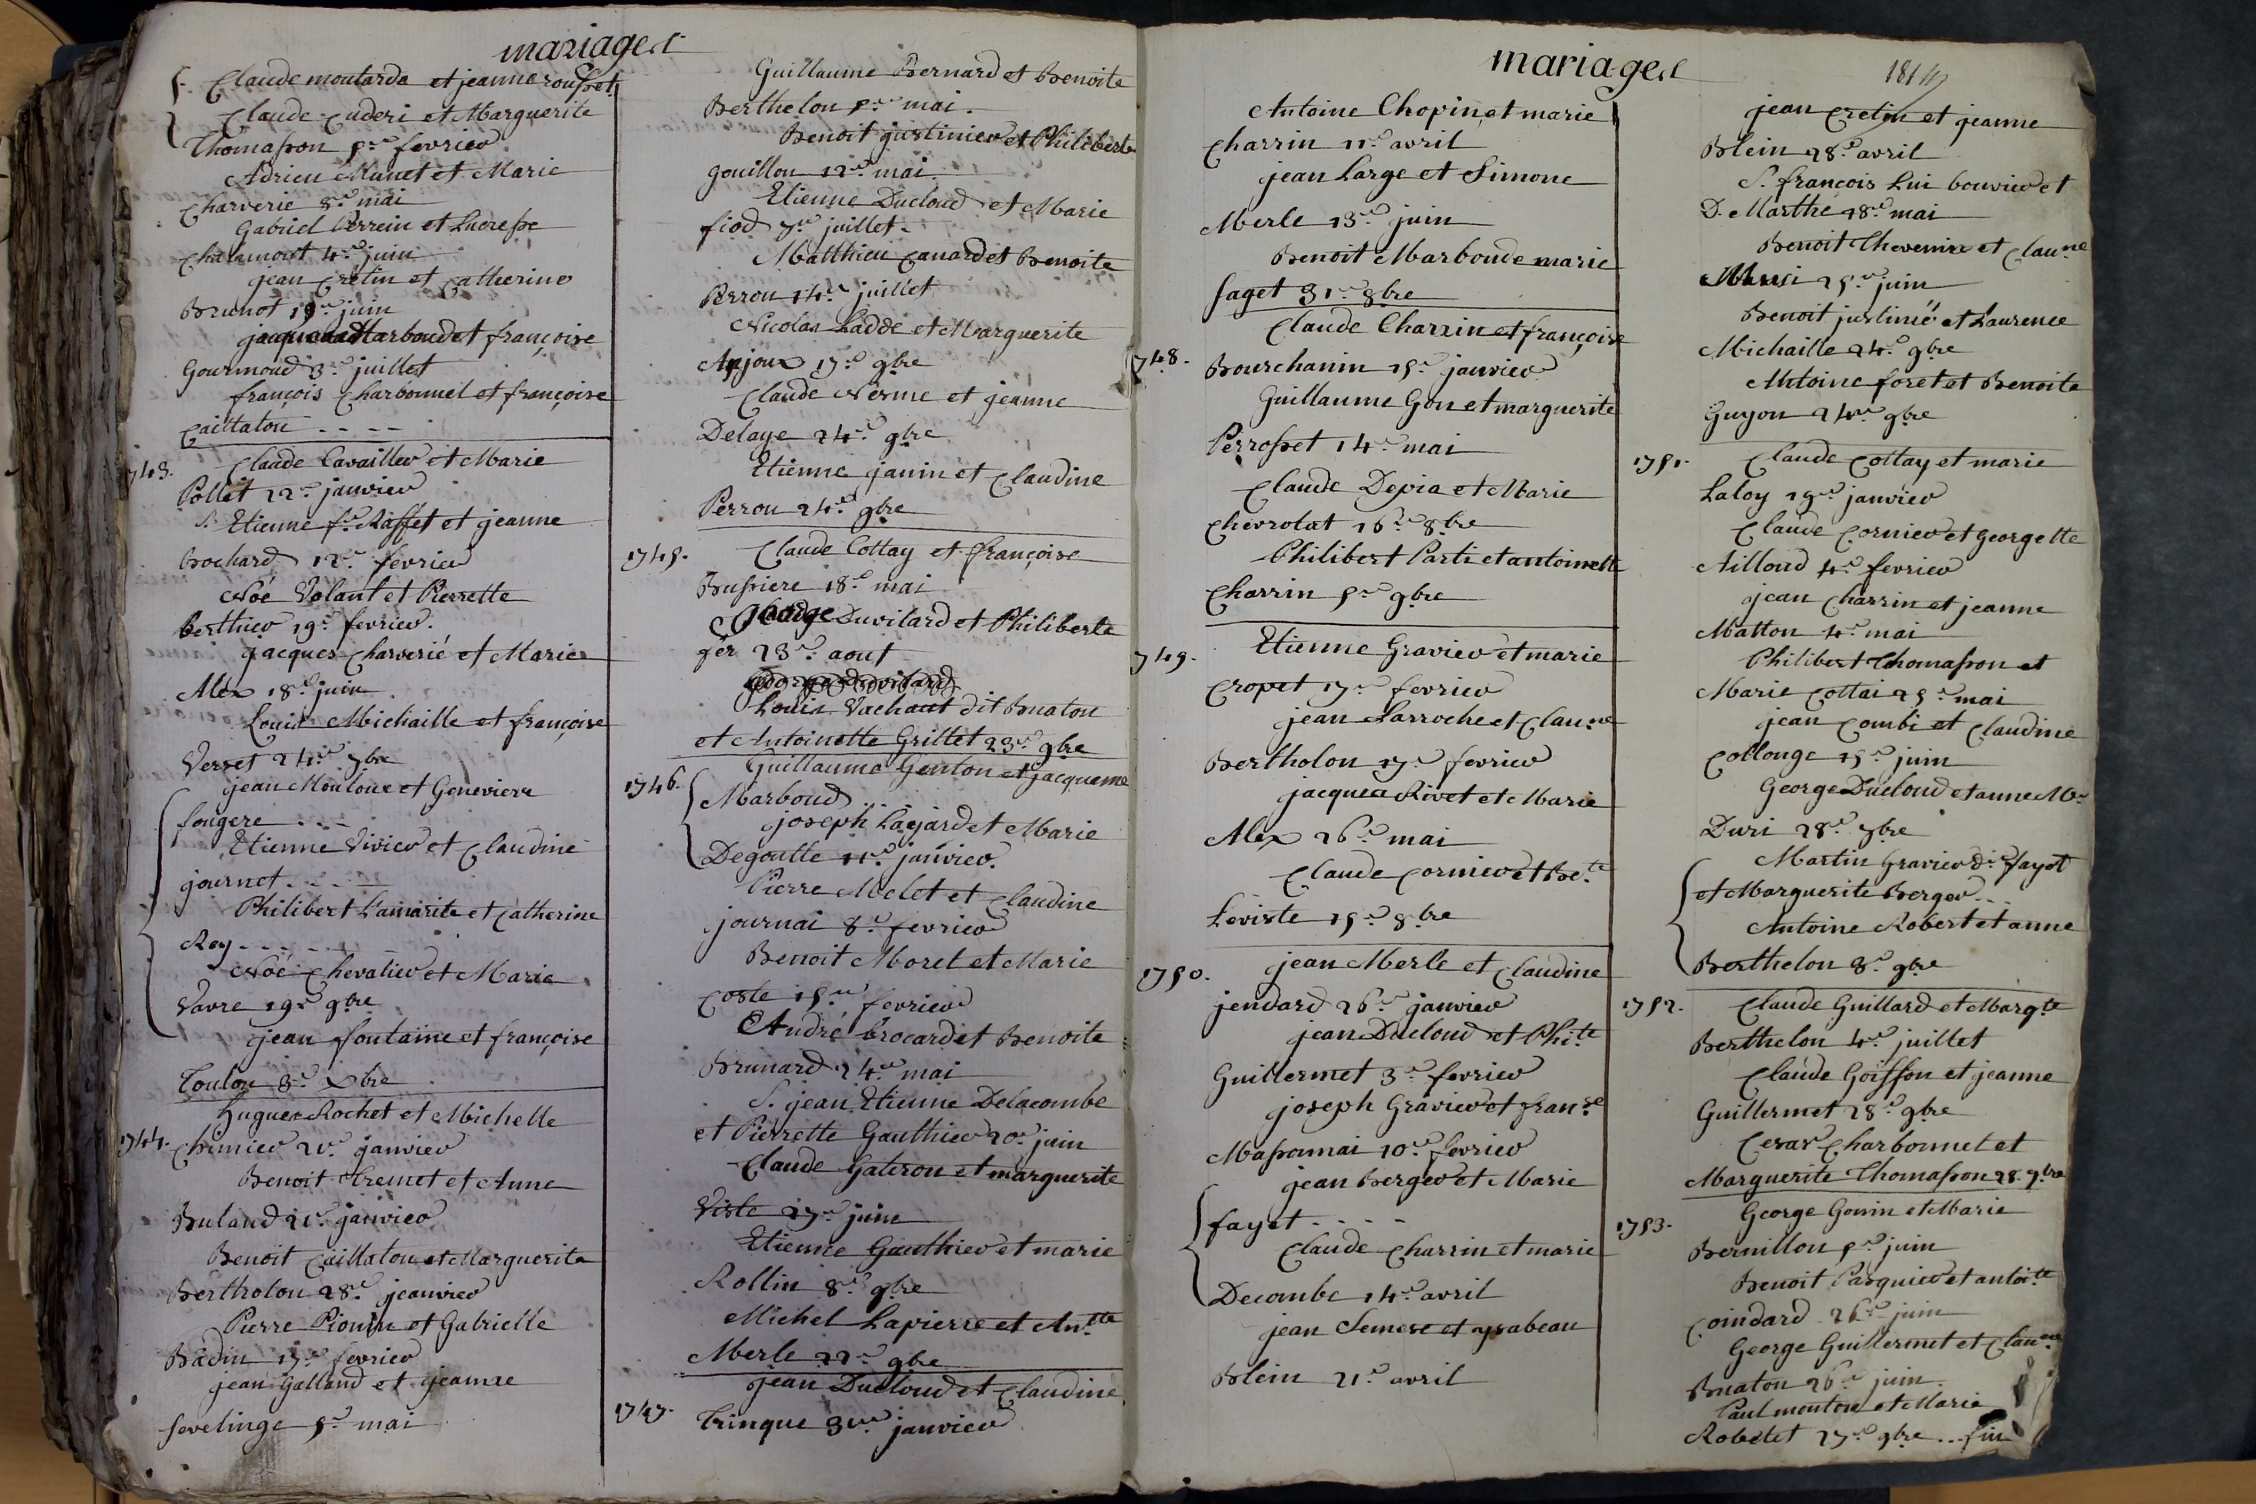 mariages
Claude moutarde et jeanne rousset
Claude Cuderi et Marguerite
Thomasson 5e fevrier
Adrien Munet et Marie
Charverie 8e mai
Gabriel Perrein et Lucresse
Chalumont 4e juin
jean Cretin et Catherine
Brunot 19e juin
Marboud et françoise
Gourmoud 3e juillet
françois Charbonnel et françoise
Caillaton - - - -
1743. Claude Cavailler et Marie
Pollet 22e janvier
S. Etienne fs Raffet et jeanne
brochard 12e fevrier
Noé Volant et Pierrette
berthier 19e fevrier.
jacques Charverié et Marie
Alex 18e juin
Louis Michaille et françoise
Verset 24e 7bre
jean Mouloux et Genevieve
fougere - - -
Etienne Vivier et Claudine
journet - - - -
Philibert Lamarite et Catherine
Rey - - - -
Noé Chevalier et Marie
Vavre 19e 9bre
jean fontaine et françoise
Toulon 3e Xbre
Hugues Rochet et Michelle
1744. Chimier 21e janvier
Benoit Tremet et Anne
Buland 21e janvier
Benoit Caillaton et Marguerite
Bertholon 28e jeanvier
Pierre Pionin et Gabrielle
Badin 17e fevrier
jean Galland et jeanne
fevelinge 5e mai
Guillaume Bernard et Benoite
Berthelon 5e mai.
Benoit justinier et Philiberte
gouillon 12e mai.
Etienne Ducloud et Marie
fiod 7e juillet.
Matthieu Canard et Benoite
Perron 14e juillet
Nicolas Laddé et Marguerite
Anjoux 17e 9bre
Claude Nesme et jeanne
Delaye 24e 9bre
Etienne janin et Claudine
Perron 24e 9bre
1745. Claude Cottay et françoise
Bussiere 18e mai
George Duvilard et Philiberte
gér 23e aout
Louis Vachaut dit Buaton
et Antoinette Grillet 23e 9bre
Guillaume Genton et jacqueme
1746. Marboud ...
joseph Lagard et Marie
Degoutte 11e janvier.
Pierre Melet et Claudine
journai 8e fevrier
Benoit Moret et Marie
Coste 15e fevrier
André brocard et Benoite
Brunard 24e mai
S. jean Etienne Delacombe
et Pierrette Gauthier 20e juin
Claude Gateron et marguerite
Viste 27e juin
Etienne Gauthier et marie
Rollin 8e 9bre
Michel Lapierre et Antte
Merle 22e 9bre
jean Ducloud et Claudine
1747. Trinque 31e janvier
mariages
181
Antoine Chopin et marie
Charrin 11e avril
jean Large et Simone
Merle 13e juin
Benoit Marboude marie
faget 31e 8bre
Claude Charrin et françoise
1748. Bourchanin 15e janvier
Guillaume Gon et marguerite
Perrosset 14e mai
Claude Depia et Marie
Chevrolat 16e 8bre
Philibert Parti et antoinette
Charrin 5e 9bre
1749. Etienne Gravier et marie
Cropet 17e fevrier
jean Larroche et Claune
Bertholon 17e fevrier
jacques Rivet et Marie
Alex 26e mai
Claude Cornier et Bete
Leviste 15e 8bre
1750. jean Merle et Claudine
jendard 26e janvier
jean Ducloud et Phite
Guillermet 3e fevrier
joseph Gravier et franse
Massonnai 10e fevrier
jean Berger et Marie
fayet - - - -
Claude Charrin et marie
Decombe 14e avril
jean Semese et ysabeau
Blein 21e avril
jean Cretin et jeanne
Blein 28e avril
S. françois Lui bouvier et
D. Marthe 18e mai
Benoit Thevenin et Claune
25e juin
Benoit justinié et Laurence
Michaille 24e 9bre
Antoine foret et Benoite
Guyon 24e 9bre
1751. Claude Cottay et marie
Laloy 19e janvier
Claude Cornier et Georgette
Ailloud 4e fevrier
jean Charrin et jeanne
Matton 4e mai
Philibert Thomasson et
Marie Cottai 25e mai
jean Combe et Claudine
Collonge 15e juin
George Ducloud et anne Me
Duri 28e 7bre
Martin Gravier dit fayot
et Marguerite Berger ...
Antoine Robert et anne
Berthelon 8e 9bre
1752. Claude Guillard et Margte
Berthelon 4e juillet
Claude Goiffon et jeanne
Guillermet 28e 9bre
Cesar Charbonnet et
Marguerite Thomasson 28. 9bre
1753. George Gonin et Marie
Bernillon 5e juin
Benoit Pasquier et antoite
Coindard 26e juin
George Guillermet et Claune
Buaton 26e juin.
Paul mouton et Marie
Robetet 27e 9bre ... fin